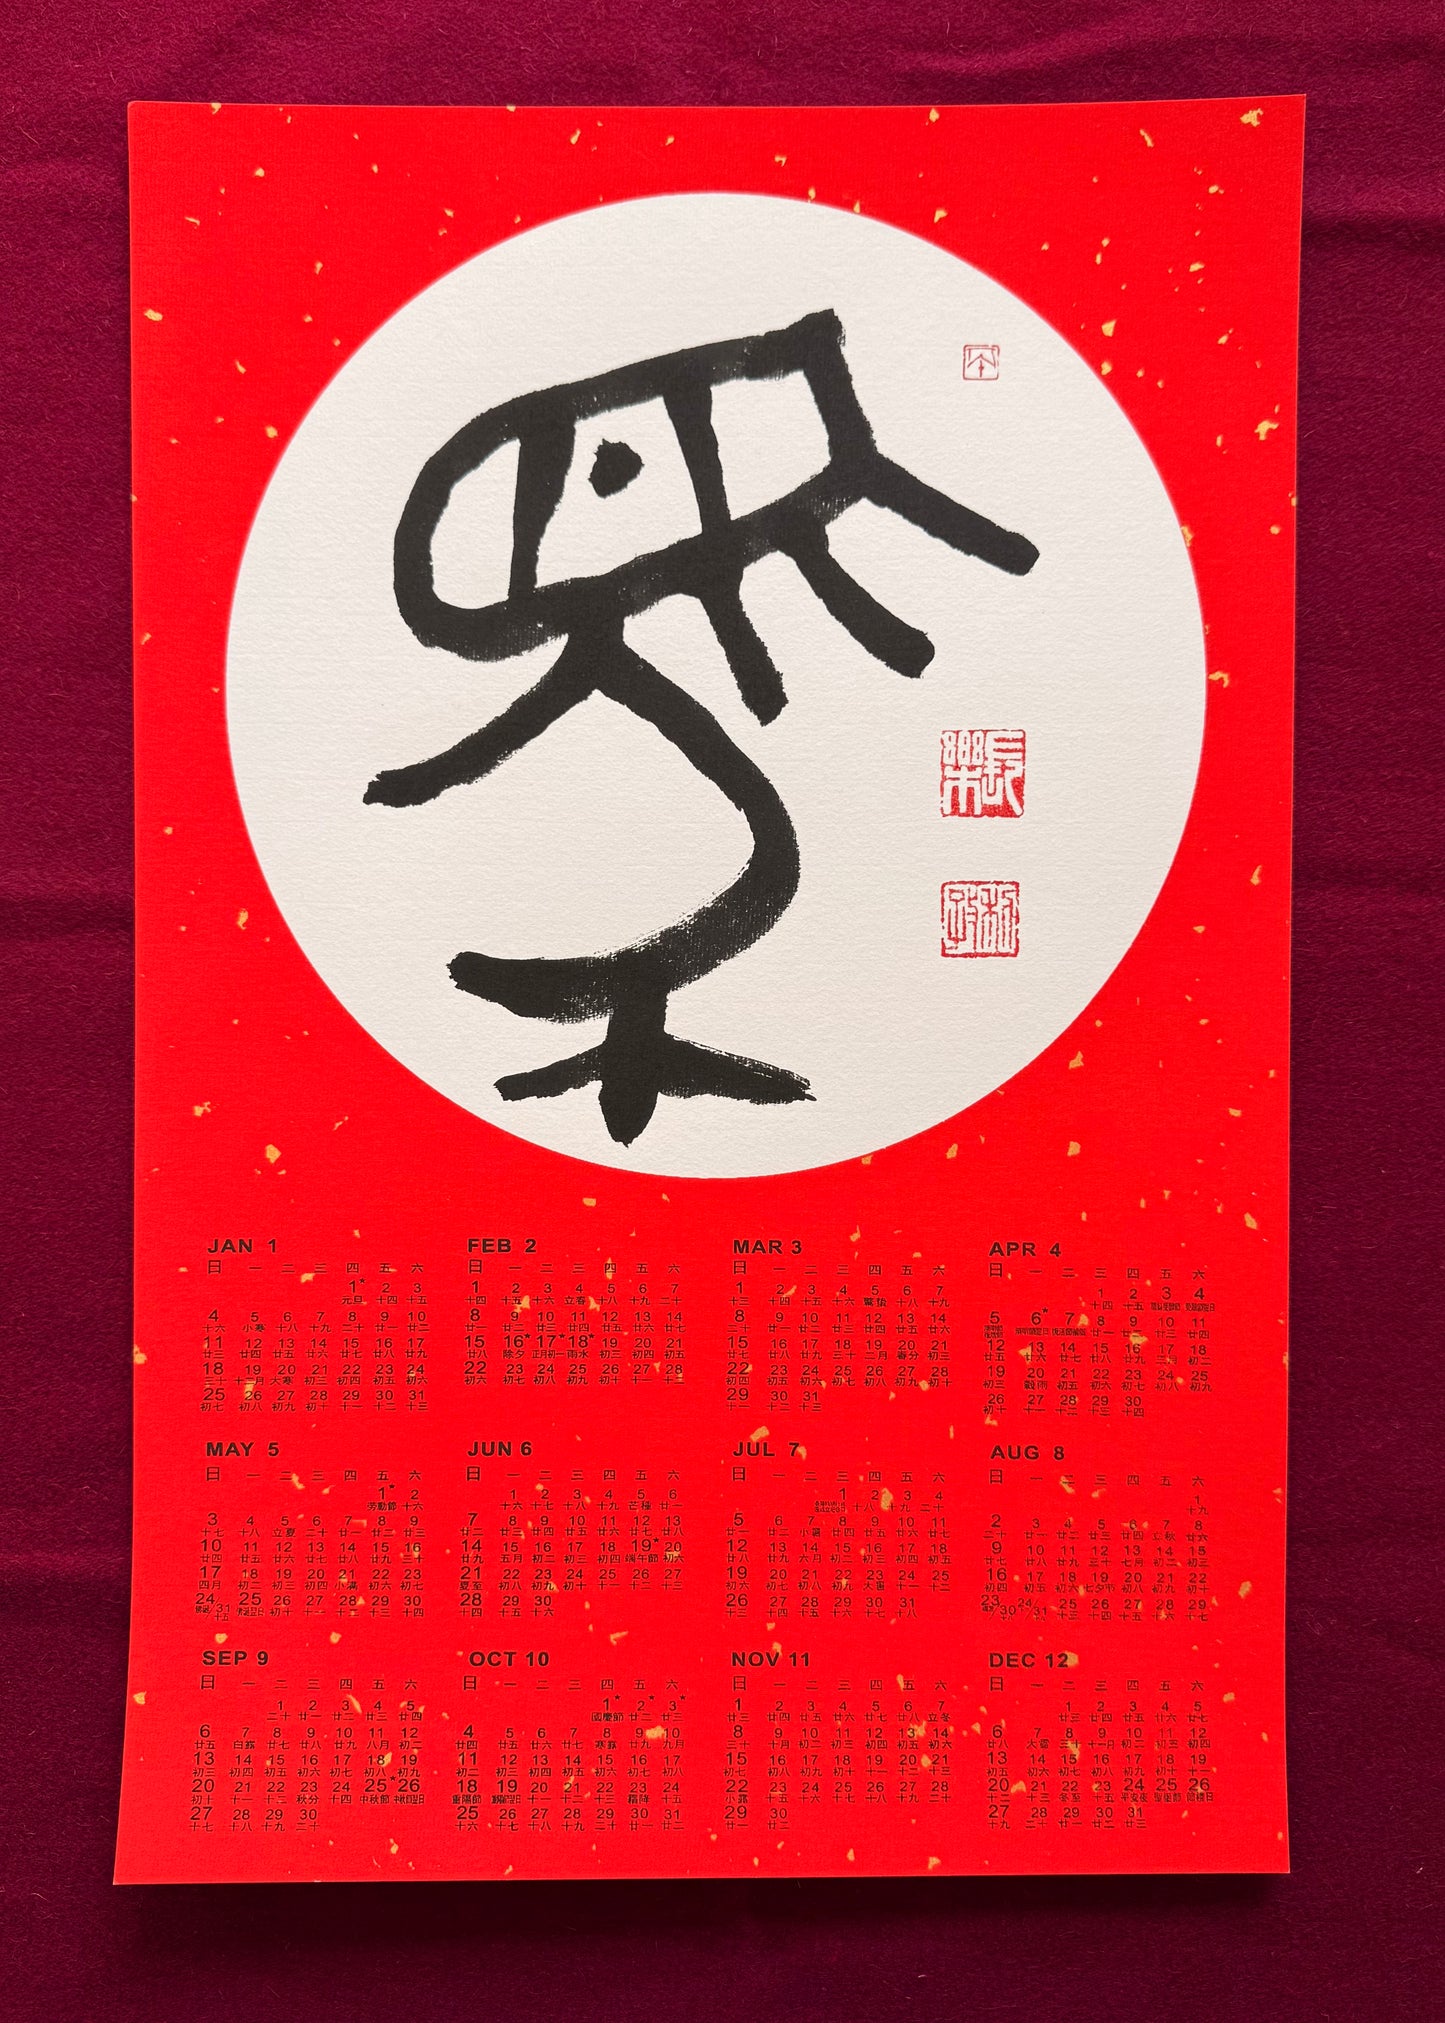 長樂
JAN 1
日 一 二 三 四 五 六
1* 2 3
元旦 十四 十五
4 5 6 7 8 9 10
十六 小寒 十八 十九 二十 廿一 廿二
11 12 13 14 15 16 17
廿三 廿四 廿五 廿六 廿七 廿八 廿九
18 19 20 21 22 23 24
三十 十二月 大寒 初三 初四 初五 初六
25 26 27 28 29 30 31
初七 初八 初九 初十 十一 十二 十三
FEB 2
日 一 二 三 四 五 六
1 2 3 4 5 6 7
十四 十五 十六 立春 十八 十九 二十
8 9 10 11 12 13 14
廿一 廿二 廿三 廿四 廿五 廿六 廿七
15 16* 17* 18* 19 20 21
廿八 除夕 正月初一 雨水 初三 初四 初五
22 23 24 25 26 27 28
初六 初七 初八 初九 初十 十一 十二
MAR 3
日 一 二 三 四 五 六
1 2 3 4 5 6 7
十三 十四 十五 十六 驚蟄 十八 十九
8 9 10 11 12 13 14
二十 廿一 廿二 廿三 廿四 廿五 廿六
15 16 17 18 19 20 21
廿七 廿八 廿九 三十 二月 春分 初三
22 23 24 25 26 27 28
初四 初五 初六 初七 初八 初九 初十
29 30 31
十一 十二 十三
APR 4
日 一 二 三 四 五 六
1 2 3 4
十四 十五
5 6* 7 8 9 10 11
廿一 廿二 廿三 廿四
12 13 14 15 16 17 18
廿五 廿六 廿七 廿八 廿九 三月 初二
19 20 21 22 23 24 25
初三 穀雨 初五 初六 初七 初八 初九
26 27 28 29 30
初十 十一 十二 十三 十四
MAY 5
日 一 二 三 四 五 六
1* 2
労動節 十六
3 4 5 6 7 8 9
十七 十八 立夏 二十 廿一 廿二 廿三
10 11 12 13 14 15 16
廿四 廿五 廿六 廿七 廿八 廿九 三十
17 18 19 20 21 22 23
四月 初二 初三 初四 小滿 初六 初七
24/31 25 26 27 28 29 30
十五 初十 十一 十二 十三 十四
JUN 6
日 一 二 三 四 五 六
1 2 3 4 5 6
十六 十七 十八 十九 芒種 廿一
7 8 9 10 11 12 13
廿二 廿三 廿四 廿五 廿六 廿七 廿八
14 15 16 17 18 19* 20
廿九 五月 初二 初三 初四 端午節 初六
21 22 23 24 25 26 27
夏至 初八 初九 初十 十一 十二 十三
28 29 30
十四 十五 十六
JUL 7
日 一 二 三 四 五 六
1 2 3 4
十八 十九 二十
5 6 7 8 9 10 11
廿一 廿二 小暑 廿四 廿五 廿六 廿七
12 13 14 15 16 17 18
廿八 廿九 六月 初二 初三 初四 初五
19 20 21 22 23 24 25
初六 初七 初八 初九 大暑 十一 十二
26 27 28 29 30 31
十三 十四 十五 十六 十七 十八
AUG 8
日 一 二 三 四 五 六
1
十九
2 3 4 5 6 7 8
二十 廿一 廿二 廿三 廿四 立秋 廿六
9 10 11 12 13 14 15
廿七 廿八 廿九 三十 七月 初二 初三
16 17 18 19 20 21 22
初四 初五 初六 七夕節 初八 初九 初十
23/30 24/31 25 26 27 28 29
十三 十四 十五 十六 十七
SEP 9
日 一 二 三 四 五 六
1 2 3 4 5
二十 廿一 廿二 廿三 廿四
6 7 8 9 10 11 12
廿五 白露 廿七 廿八 廿九 八月 初二
13 14 15 16 17 18 19
初三 初四 初五 初六 初七 初八 初九
20 21 22 23 24 25* 26
初十 十一 十二 秋分 十四 中秋節 中秋節翌日
27 28 29 30
十七 十八 十九 二十
OCT 10
日 一 二 三 四 五 六
1* 2* 3*
國慶節 廿二 廿三
4 5 6 7 8 9 10
廿四 廿五 廿六 廿七 寒露 廿九 九月
11 12 13 14 15 16 17
初二 初三 初四 初五 初六 初七 初八
18 19 20 21 22 23 24
重陽節 重陽節翌日 十一 十二 十三 霜降 十五
25 26 27 28 29 30 31
十六 十七 十八 十九 二十 廿一 廿二
NOV 11
日 一 二 三 四 五 六
1 2 3 4 5 6 7
廿三 廿四 廿五 廿六 廿七 廿八 立冬
8 9 10 11 12 13 14
三十 十月 初二 初三 初四 初五 初六
15 16 17 18 19 20 21
初七 初八 初九 初十 十一 十二 十三
22 23 24 25 26 27 28
小雪 十五 十六 十七 十八 十九 二十
29 30
廿一 廿二
DEC 12
日 一 二 三 四 五 六
1 2 3 4 5
廿三 廿四 廿五 廿六 廿七
6 7 8 9 10 11 12
廿八 大雪 三十 十一月 初二 初三 初四
13 14 15 16 17 18 19
初五 初六 初七 初八 初九 初十 十一
20 21 22 23 24 25 26
十二 十三 冬至 十五 平安夜 聖誕節
27 28 29 30 31
十九 二十 廿一 廿二 廿三